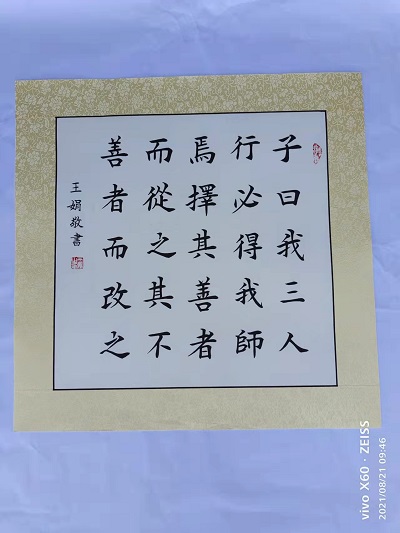 子曰我三人
行必得我師
焉擇其善者
而從之其不
善者而改之
王娟敬書
vivo X60 · ZEISS
2021/08/21 09:46